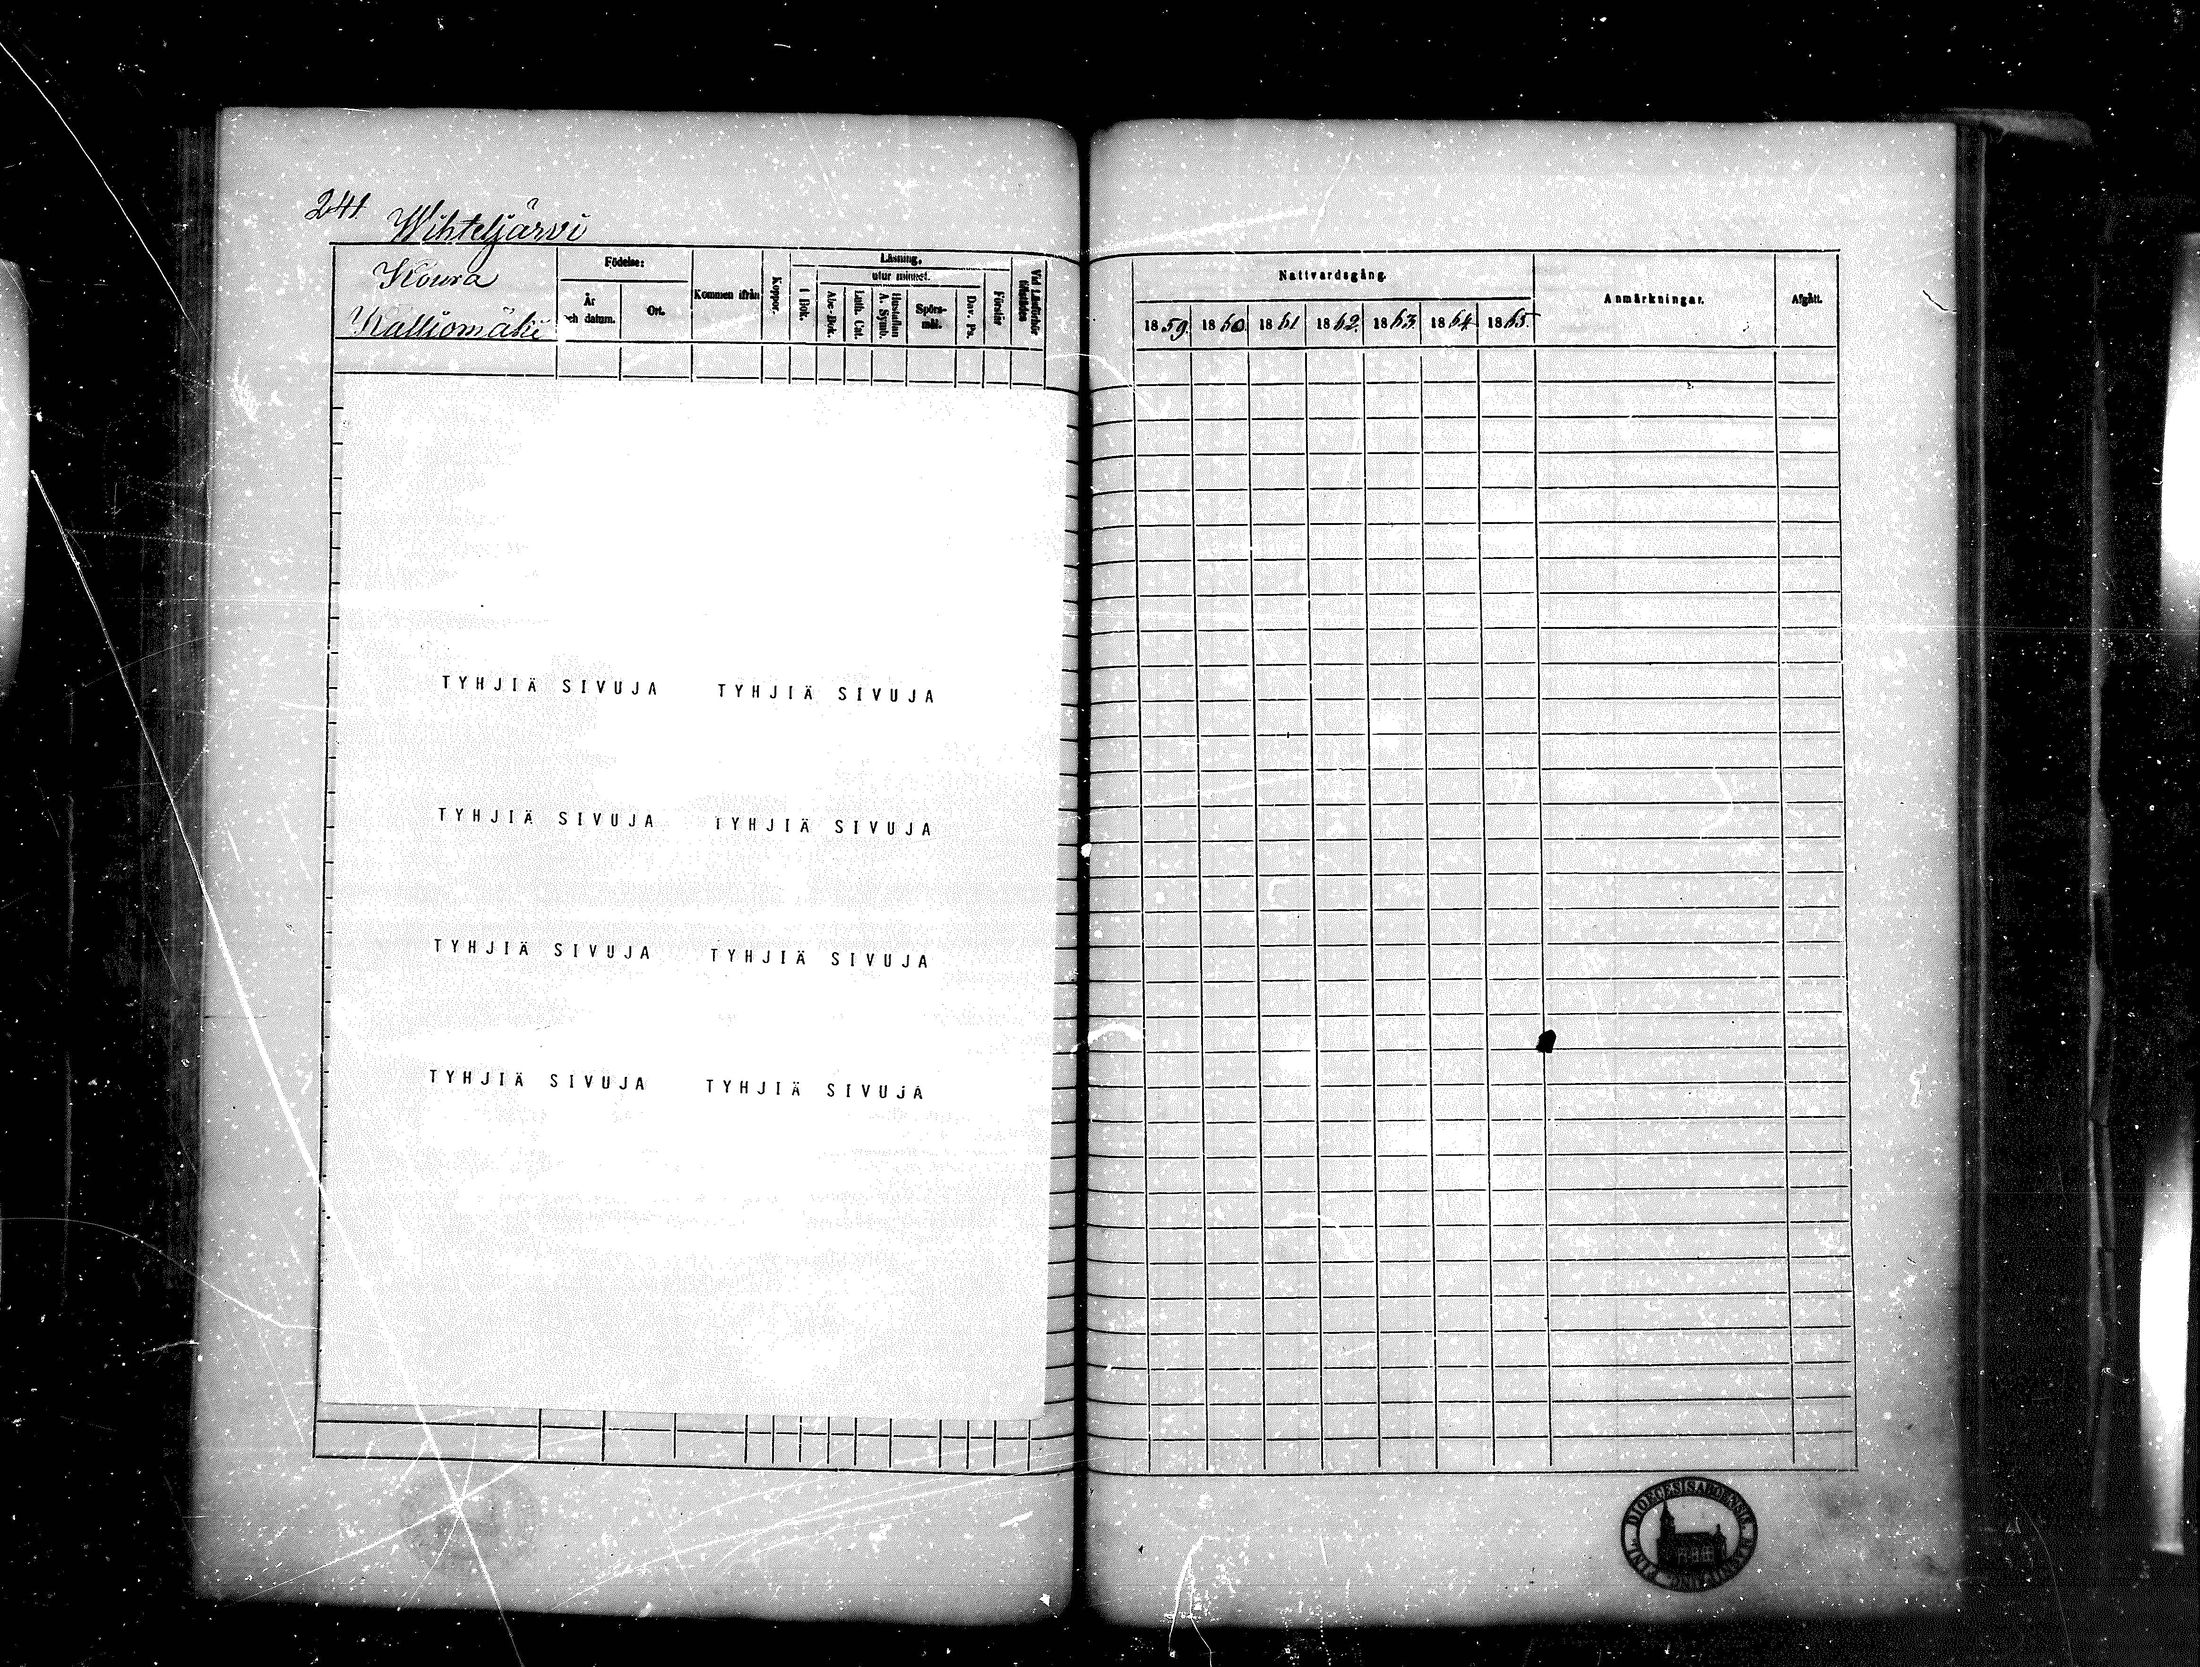 241.
Wihteljärvi
Koura
Kalliomäki
Födelse:
År
och datum.
Ort.
Kommen ifrån
Koppor.
Läsning,
utur minnet.
i Bok.
Abc-Bok.
Luth. Cat.
Hustaflan
A. Symb.
Spörs-
mål.
Dav. Ps.
Förstår
Nattvardsgång.
1859. 1860 1861 1862. 1863. 1864. 1865.
Anmärkningar.
Afgått.
TYHJIÄ SIVUJA TYHJIÄ SIVUJA
TYHJIÄ SIVUJA TYHJIÄ SIVUJA
TYHJIÄ SIVUJA TYHJIÄ SIVUJA
TYHJIÄ SIVUJA TYHJIÄ SIVUJA